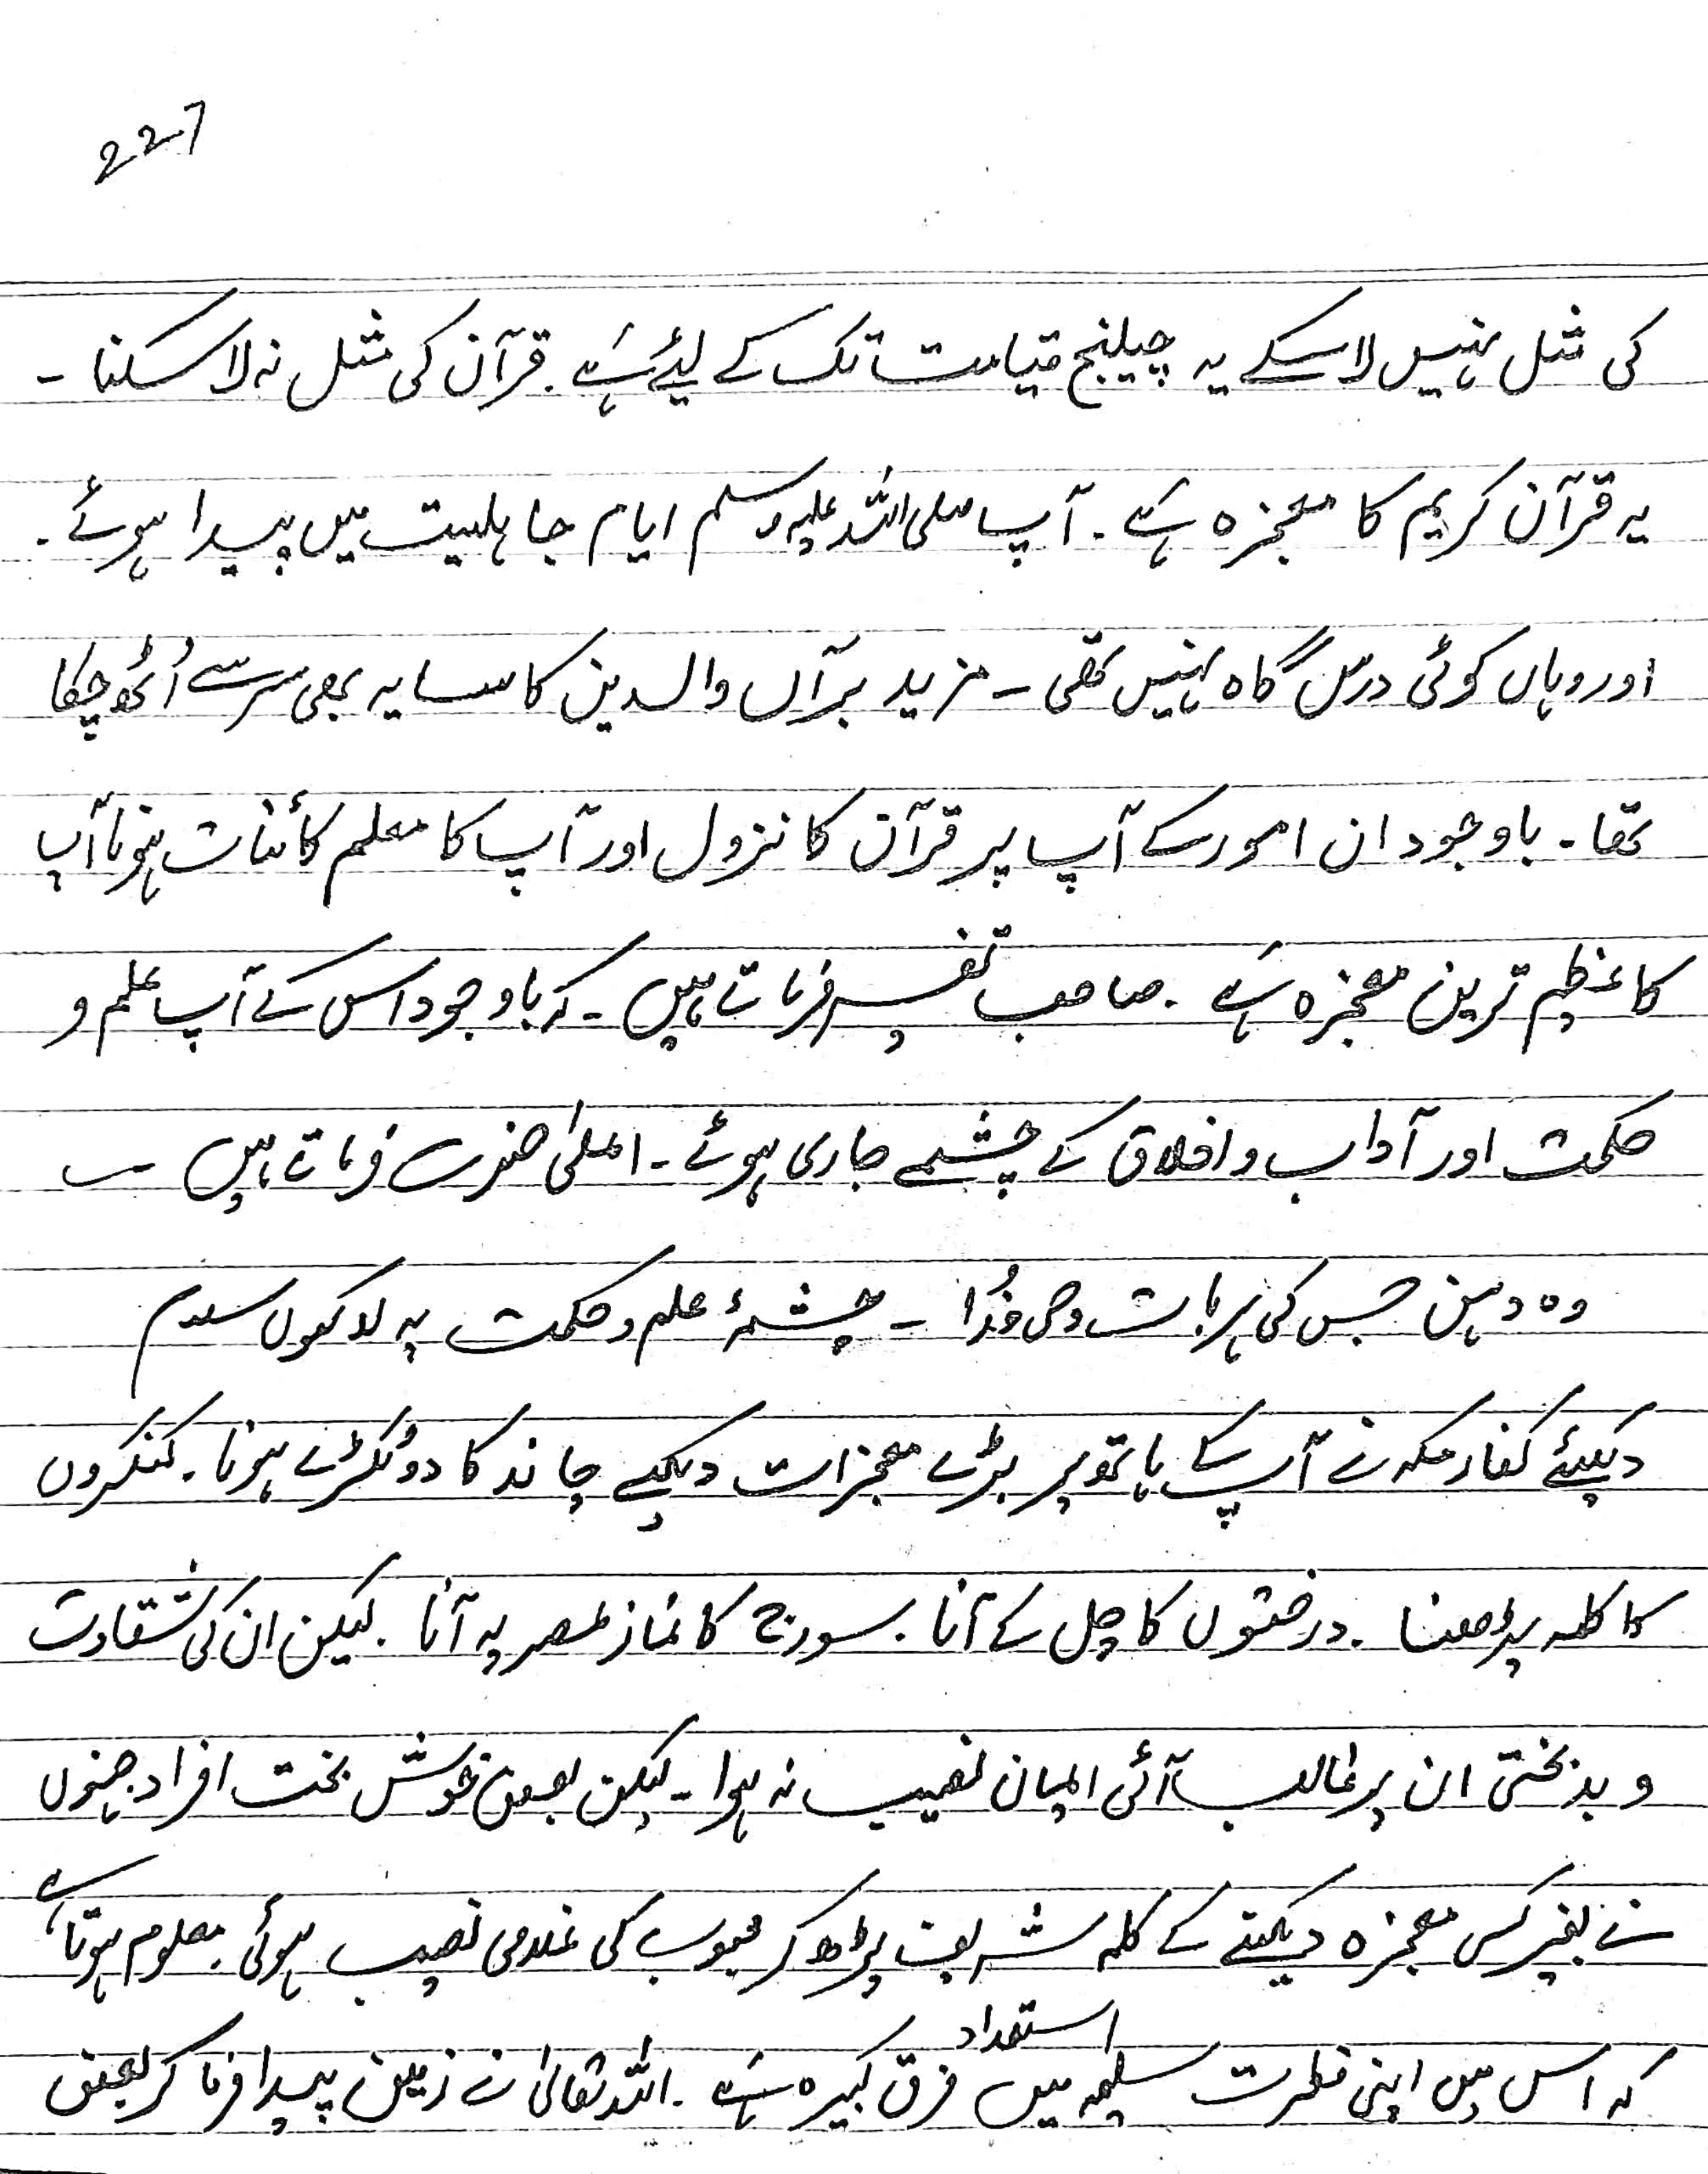 227
کی مثل نہیں لا سکے یہ چیلنج قیامت تک کے لیئے ہے۔ قرآن کی مثل نہ لا سکنا ۔
یہ قرآن کریم کا معجزہ ہے۔ آپ صلی اللہ علیہ وسلم ایام جاہلیت میں پیدا ہوئے۔
اور وہاں کوئی درس گاہ نہیں تھی ۔ مزید برآں والدین کا سایہ بھی سر سے اُٹھ چکا
تھا ۔ باوجود ان امور کے آپ پر قرآن کا نزول اور آپ کا معلم کائنات ہونا آپ
کا عظیم ترین معجزہ ہے ۔ صاحب تفسیر فرماتے ہیں ۔ کہ باوجود اس کے آپ علم و
حکمت اور آداب و اخلاق کے چشمے جاری ہوئے۔ اعلیٰ حضرت فرماتے ہیں ۔
وہ دہن جس کی ہر بات وحی خُدا ۔ چشمۂ علم و حکمت پہ لاکھوں سلام
دیکھئے کفار مکہ نے آپ کے ہاتھ پر بڑے معجزات دیکھے چاند کا دو ٹکڑے ہونا۔ کنکروں
کا کلمہ پڑھنا ۔ درختوں کا چل کے آنا ۔ سورج کا نماز عصر پہ آنا ۔ لیکن ان کی شقاوت
و بدبختی ان پر غالب آئی ایمان نصیب نہ ہوا ۔ لیکن بعض خوش بخت افراد جنہوں
نے بغیر کسی معجزہ دیکھنے کے کلمہ شریف پڑھ کر محبوب کی غلامی نصیب ہوئی ۔ معلوم ہوتا ہے
کہ اس میں اپنی فطرت سلیمہ میں استعداد فرق کبیرہ ہے ۔ اللہ تعالیٰ نے زمین پیدا فرما کر بعض